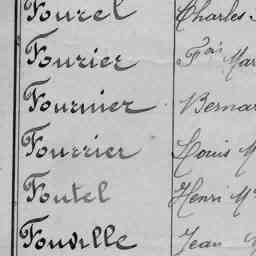 Fourel Charles
Fourier Fois Mar
Fournier Bernar
Fourrier Louis M
Foutel Henri M
Fouville Jean